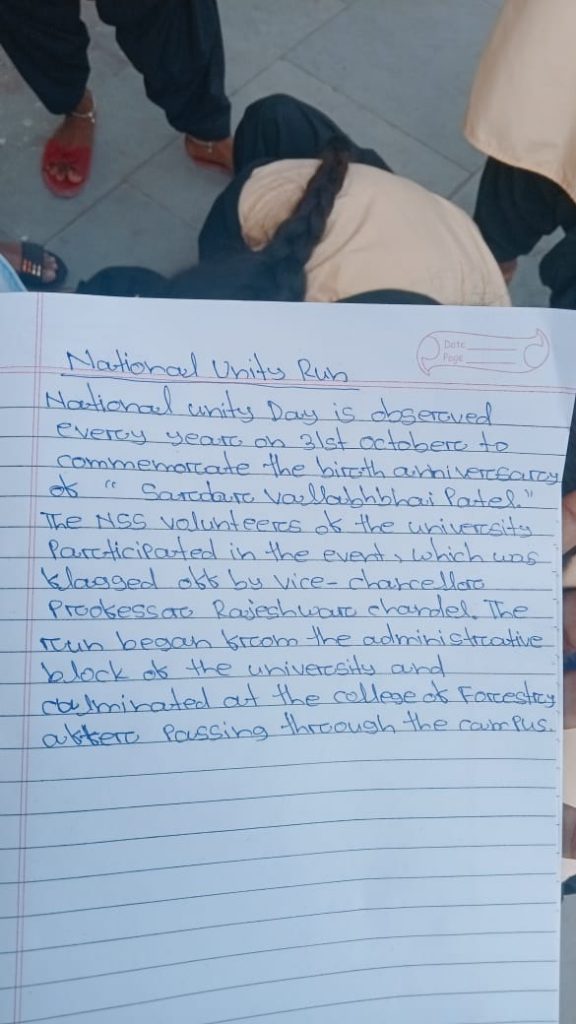 Date
Page
National Unity Run
National unity Day is observed
every year on 31st october to
commemorate the birth anniversary
of " Sardar vallabhbhai Patel."
The NSS volunteers of the university
Participated in the event, which was
flagged off by vice-chancellor
Professor Rajeshwar chandel. The
run began from the administrative
block of the university and
culminated at the college of Forestry
after Passing through the campus.